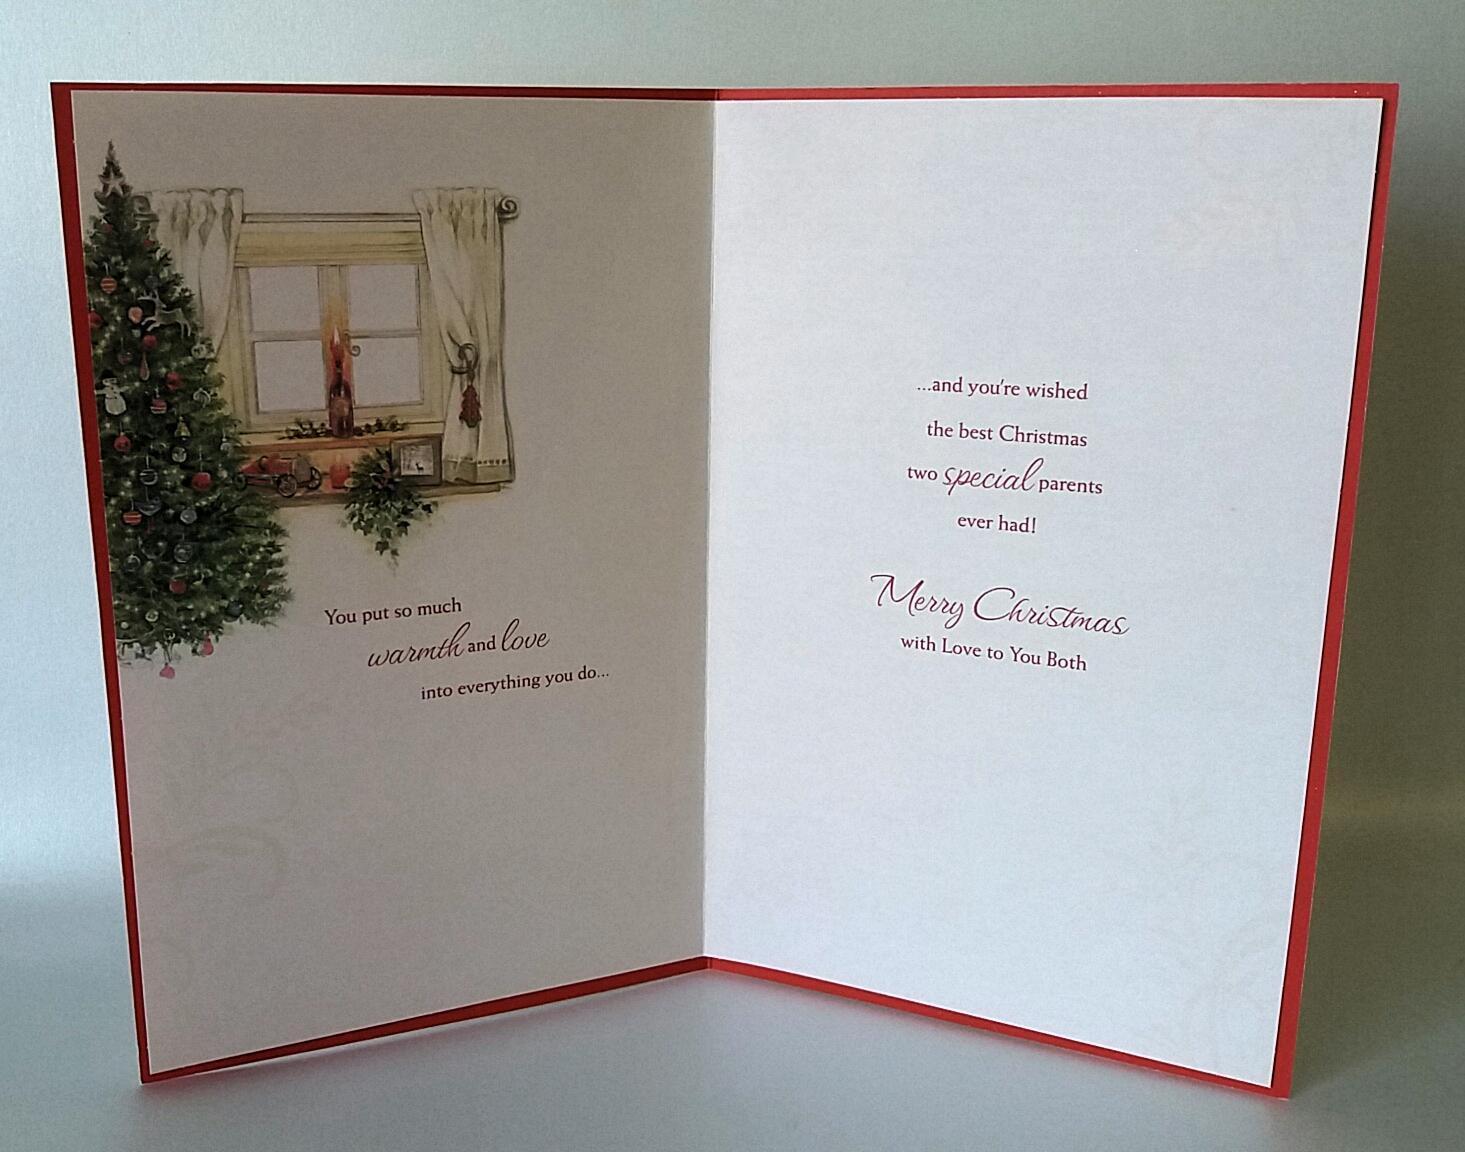 You put so much
warmth and love
into everything you do...
...and you're wished
the best Christmas
two special parents
ever had!
Merry Christmas
with Love to You Both